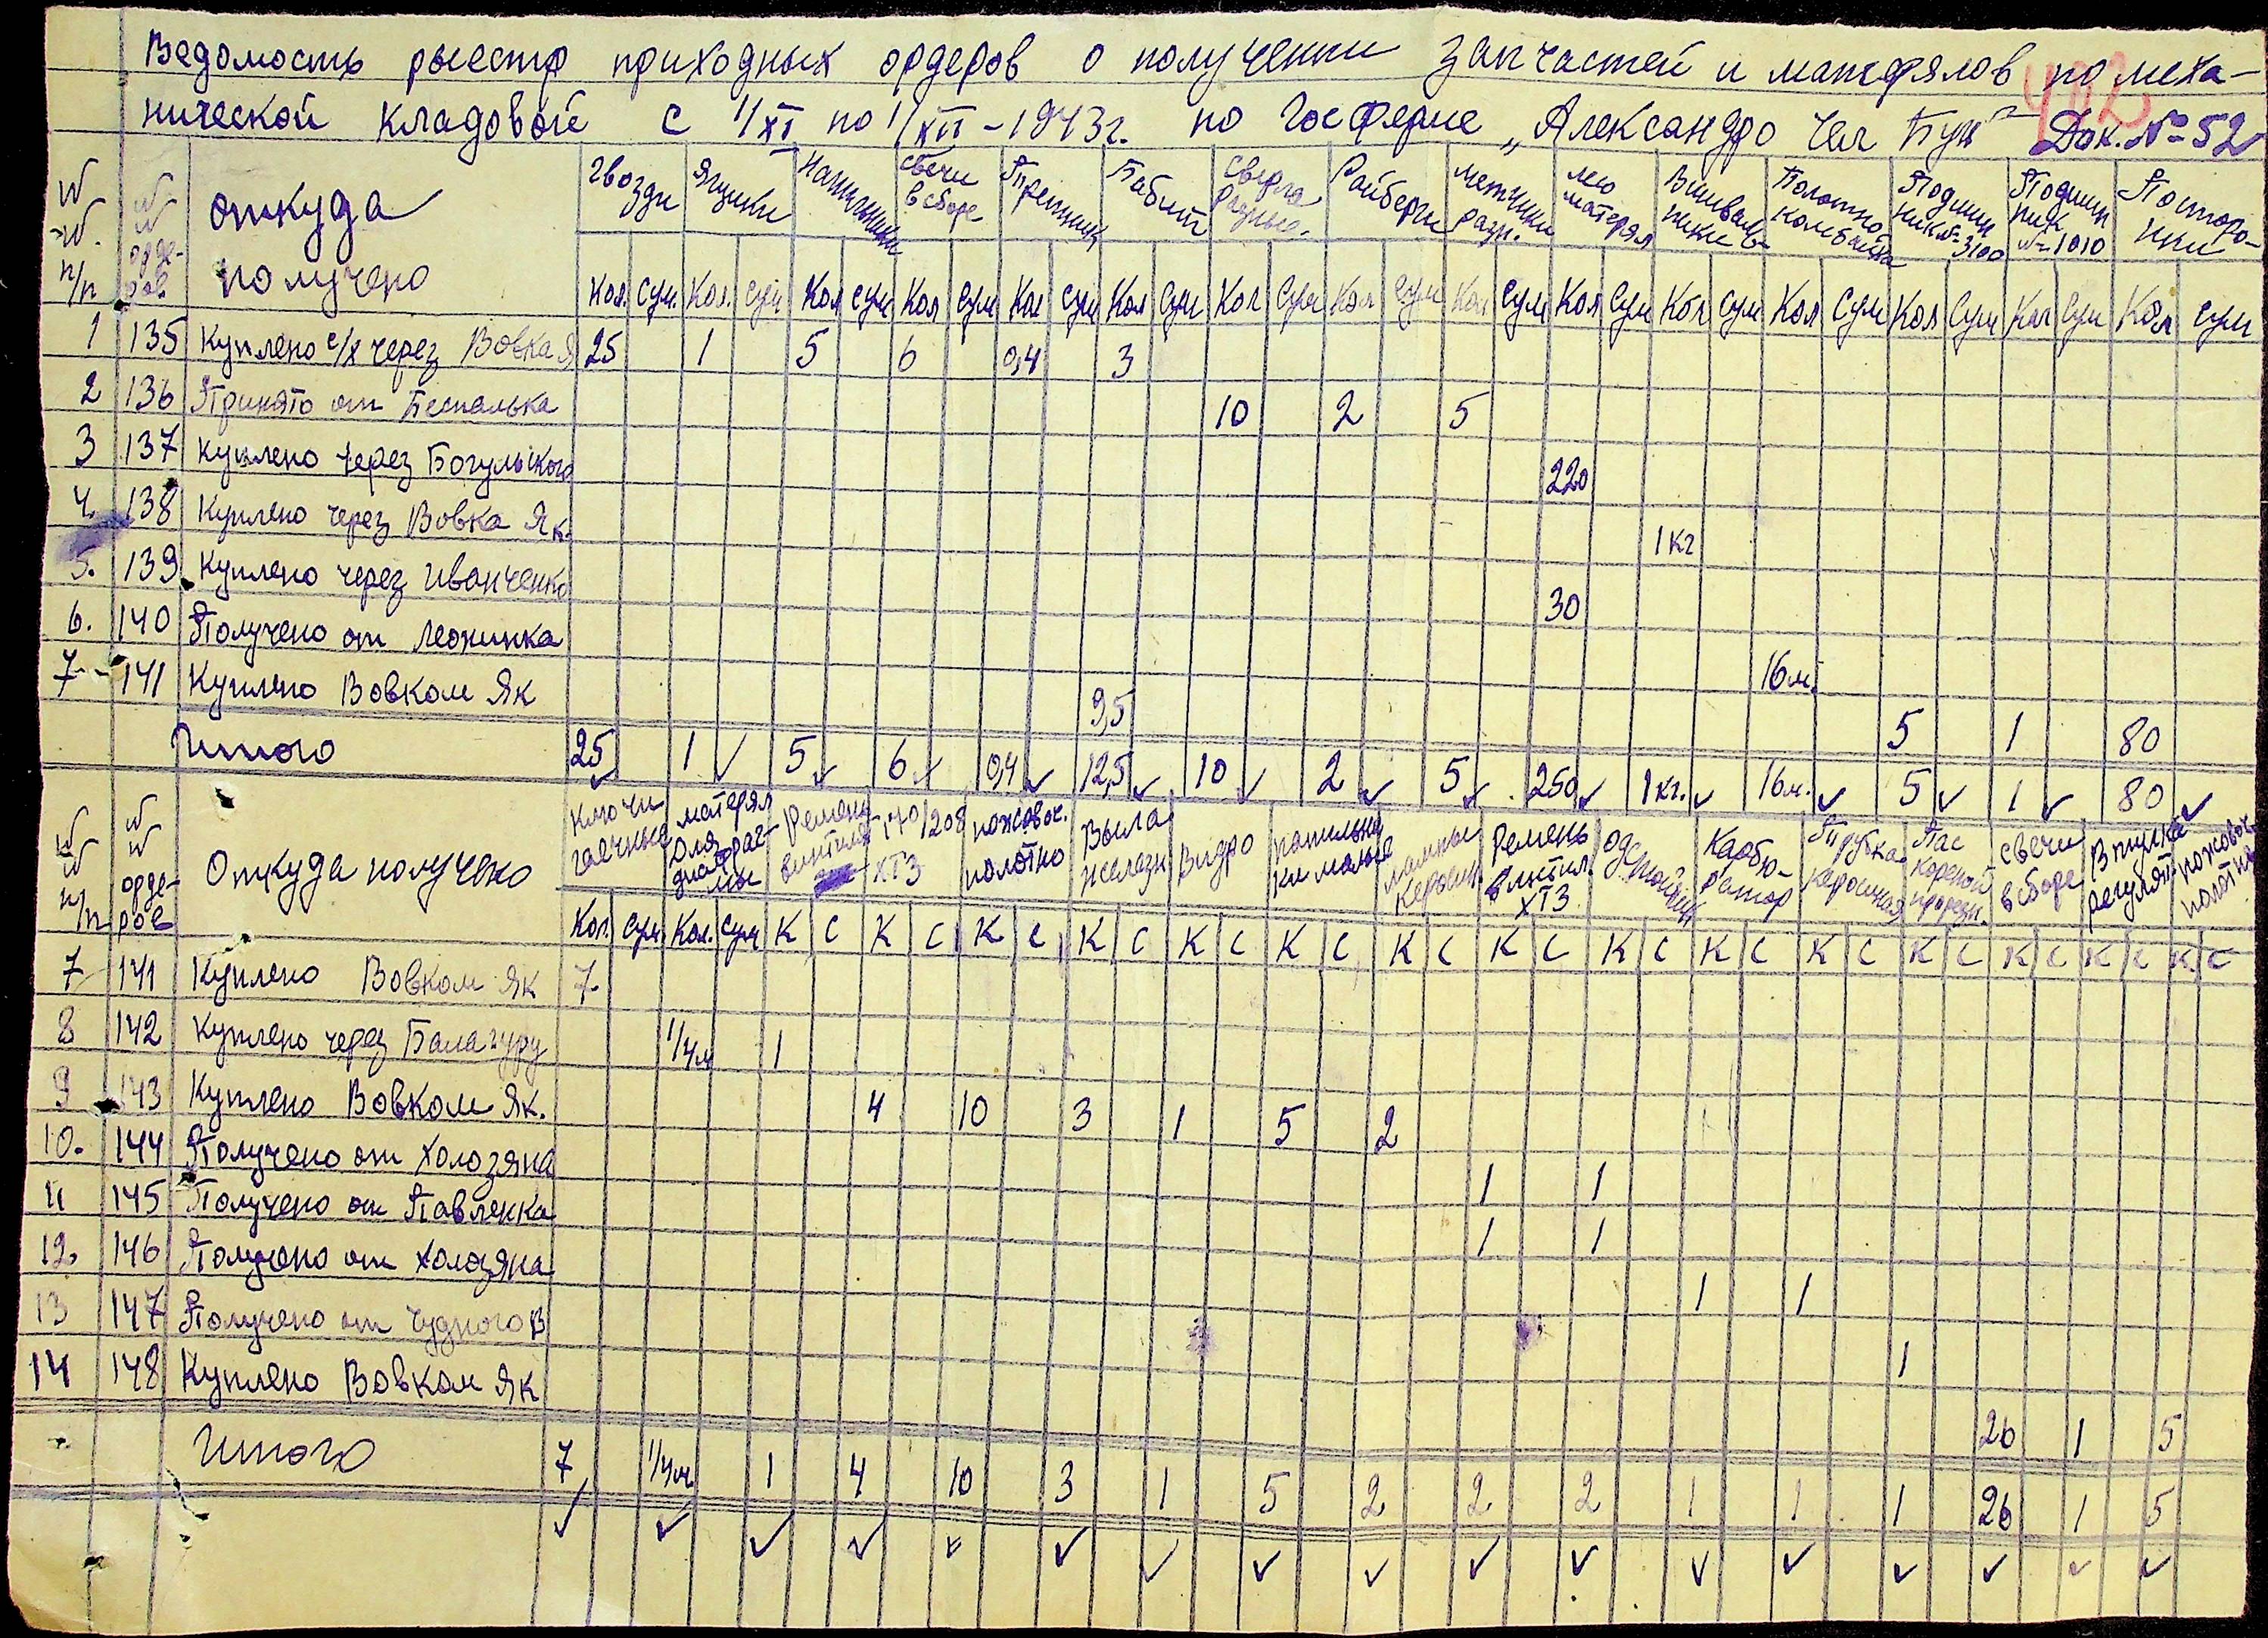 Ведомость рыестр приходных ордеров о получении запчастей и материялов по меха-
нической кладовой с 1/XI по 1/XII – 1943 г. по Госферме „Александро Чел Бун" Док. № 52
№ № п/п № № орде-ров откуда получено гвозди Ящики Напильники свечи в сборе Бабит Сверла разные. Райберги метчики разн. лею матерял Полотно комбайна Подшип ник № 3100 Подшип ник № 1010 Посторо-нки
Кол. Сум. Кол. Сум Кол Сум Кол Сум Кол Сум Кол Сум Кол Сум Кол Сум Кол Сум Кол Сум Кол Сум Кол Сум Кол Сум Кол Сум Кол Сум
1 135 Куплено с/х через Вовка Я 25 1 5 6 0,4 3
2 136 Принято от Беспалька 10 2 5
3 137 Куплено через Богульского 220
4. 138 Куплено через Вовка Як. 1 кг
5. 139 Куплено через Иванченко 30
6. 140 Получено от Леожинка 16 м.
7- 141 Куплено Вовком Як 9,5 5 1 80
Итого 25 1 5 6 0,4 12,5 10 2 5 250 1 кг. 16 м. 5 1 80
№ № п/п № № орде-ров Откуда получено ключи гаечные матерял для диафраг-мы Ремень вintиля 170/208 ХТЗ ножовоч. полотно Выла железн Видро лампы керосин. Ремень вintил. ХТЗ Карбю-ратор Трубка каросиная Пас свечи в сборе Втулка регулят. ножовоч. полотна
Кол. Сум. Кол. Сум К С К С К С К С К С К С К С К С К С К С К С К С К С К С К С
7 141 Куплено Вовком Як 7
8 142 Куплено через Балагуру 1/4 м 1
9 143 Куплено Вовком Як. 4 10 3 1 5 2
10. 144 Получено от Холозяна 1 1
11 145 Получено от Павленка 1 1
12. 146 Получено от Холозяна 1 1
13 147 Получено от Чудного В 1
14 148 Куплено Вовком Як 26 1 5
Итого 7 1/4 м. 1 4 10 3 1 5 2 2 2 1 1 1 26 1 5